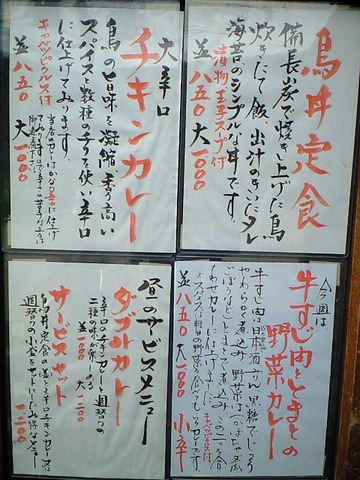 鳥丼定食
備長炭で焼き上げた鳥
炊きたて飯、出汁のきいたタレ
海苔のシンプルな丼です。
漬物玉子スープ付
並 八五〇 大 一〇〇〇
大辛口
チキンカレー
鳥の旨味を凝縮、香り高い
スパイスと数種の
辛口
に仕上げております。
キャベツピクルス付
並 八五〇 大 一〇〇〇
今週は
牛すじ肉ととまとの
野菜カレー
牛すじ肉は日本酒
黒糖でじっくり
やわらかく煮込み
野菜は
ごぼうなど
キャベツピクルス付
並 八五〇 大 一〇〇〇 小辛
昼のサービスメニュー
ダブルカレー
辛口のチキンカレーと週替りの
二種の味が楽しめる
並 一〇〇〇 大 一二〇〇
サービスセット
鳥丼定食の並と
チキンカレー又は
週替りの小盛をセットにしたお得なメニュー
一二〇〇